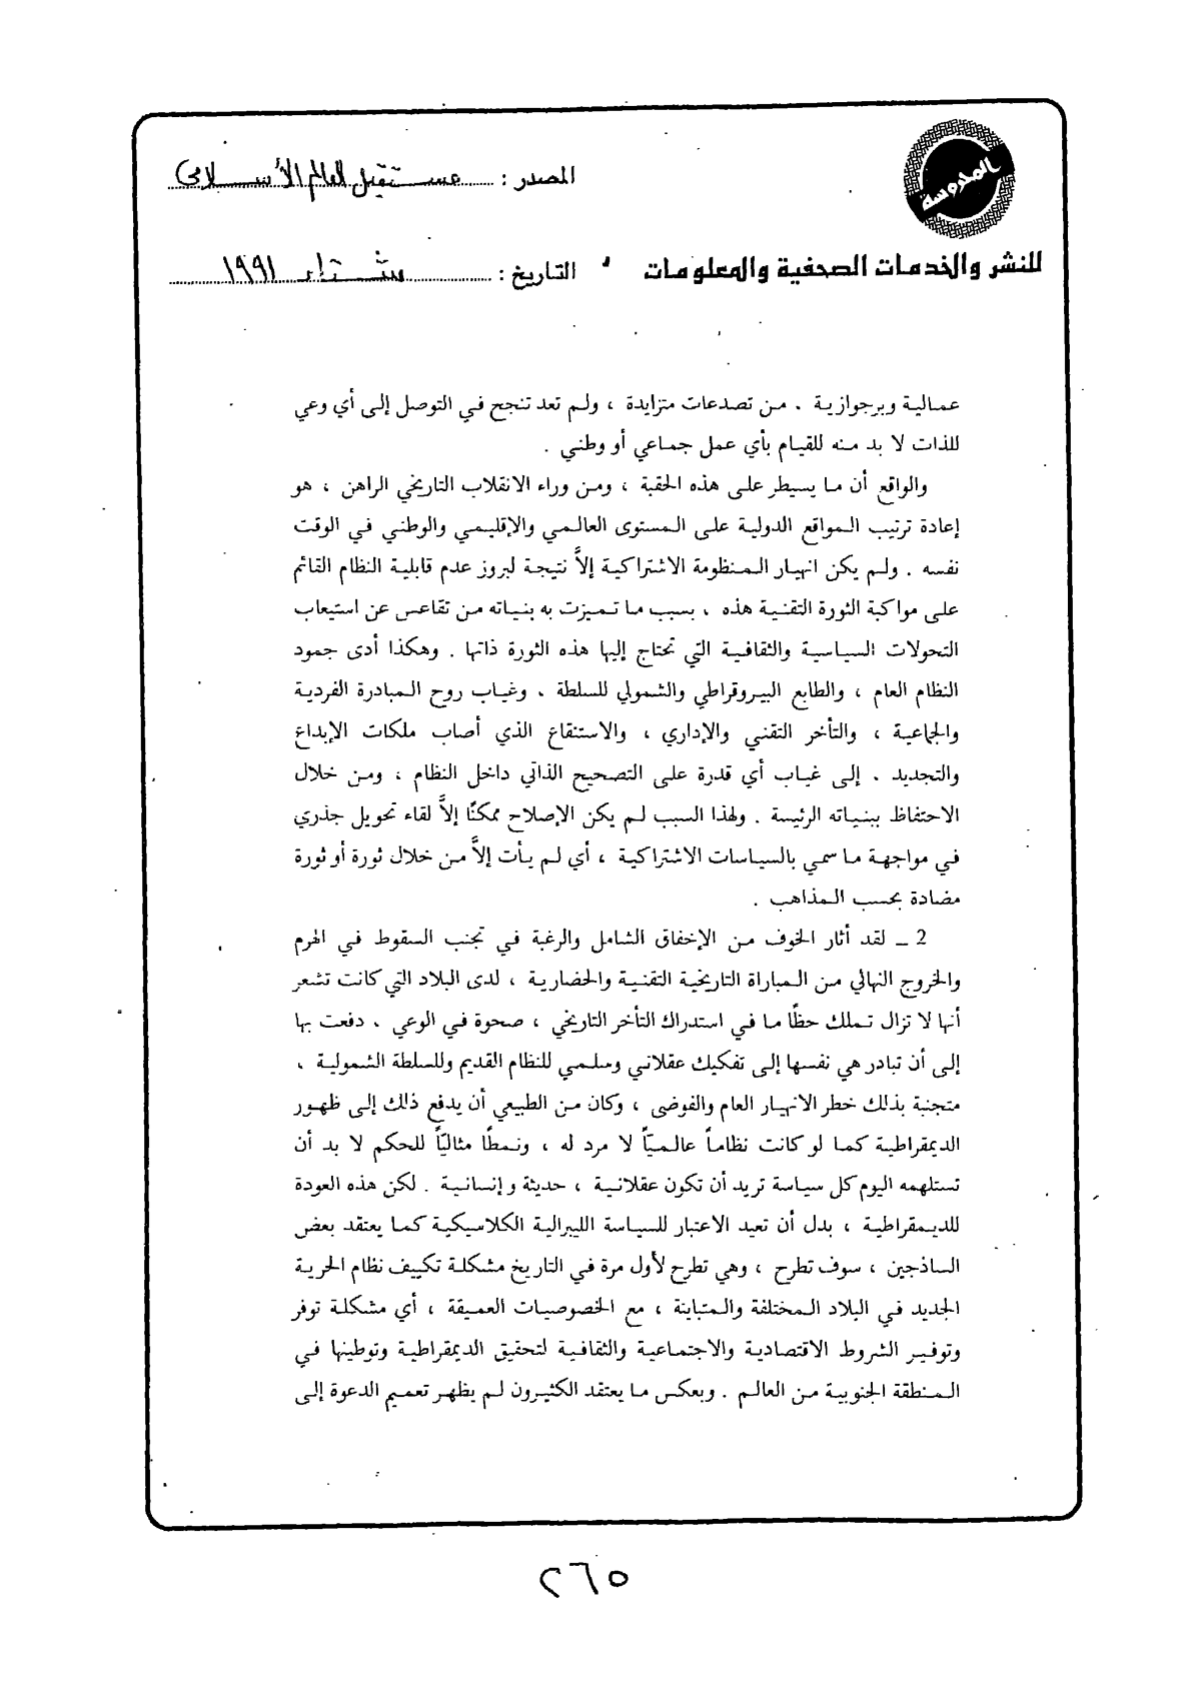 المدوسة
المصدر : مستقبل العالم الأسلامى
للنشر والخدمات الصحفية والمعلومات
التاريخ : شتاء ١٩٩١
عمالية وبرجوازية . من تصدعات متزايدة ، ولم تعد تنجح في التوصل إلى أي وعي
للذات لا بد منه للقيام بأي عمل جماعي أو وطني .
والواقع أن ما يسيطر على هذه الحقبة ، ومن وراء الانقلاب التاريخي الراهن ، هو
إعادة ترتيب المواقع الدولية على المستوى العالمي والإقليمي والوطني في الوقت
نفسه . ولم يكن انهيار المنظومة الاشتراكية إلاَّ نتيجة لبروز عدم قابلية النظام القائم
على مواكبة الثورة التقنية هذه ، بسبب ما تميزت به بنياته من تقاعس عن استيعاب
التحولات السياسية والثقافية التي تحتاج إليها هذه الثورة ذاتها . وهكذا أدى جمود
النظام العام ، والطابع البيروقراطي والشمولي للسلطة ، وغياب روح المبادرة الفردية
والجماعية ، والتأخر التقني والإداري ، والاستنقاع الذي أصاب ملكات الإبداع
والتجديد . إلى غياب أي قدرة على التصحيح الذاتي داخل النظام ، ومن خلال
الاحتفاظ ببنياته الرئيسة . ولهذا السبب لم يكن الإصلاح ممكنًا إلاَّ لقاء تحويل جذري
في مواجهة ما سمي بالسياسات الاشتراكية ، أي لم يأت إلاَّ من خلال ثورة أو ثورة
مضادة بحسب المذاهب .
2 ـ لقد أثار الخوف من الإخفاق الشامل والرغبة في تجنب السقوط في الهرم
والخروج النهائي من المباراة التاريخية التقنية والحضارية ، لدى البلاد التي كانت تشعر
أنها لا تزال تملك حظًا ما في استدراك التأخر التاريخي ، صحوة في الوعي ، دفعت بها
إلى أن تبادر هي نفسها إلى تفكيك عقلاني وسلمي للنظام القديم وللسلطة الشمولية ،
متجنبة بذلك خطر الانهيار العام والفوضى ، وكان من الطبيعي أن يدفع ذلك إلى ظهور
الديمقراطية كما لو كانت نظاماً عالميّاً لا مرد له ، ونمطًا مثاليّاً للحكم لا بد أن
تستلهمه اليوم كل سياسة تريد أن تكون عقلانية ، حديثة وإنسانية . لكن هذه العودة
للديمقراطية ، بدل أن تعيد الاعتبار للسياسة الليبرالية الكلاسيكية كما يعتقد بعض
الساذجين ، سوف تطرح ، وهي تطرح لأول مرة في التاريخ مشكلة تكييف نظام الحرية
الجديد في البلاد المختلفة والمتباينة ، مع الخصوصيات العميقة ، أي مشكلة توفر
وتوفير الشروط الاقتصادية والاجتماعية والثقافية لتحقيق الديمقراطية وتوطينها في
المنطقة الجنوبية من العالم . وبعكس ما يعتقد الكثيرون لم يظهر تعميم الدعوة إلى
٢٦٥